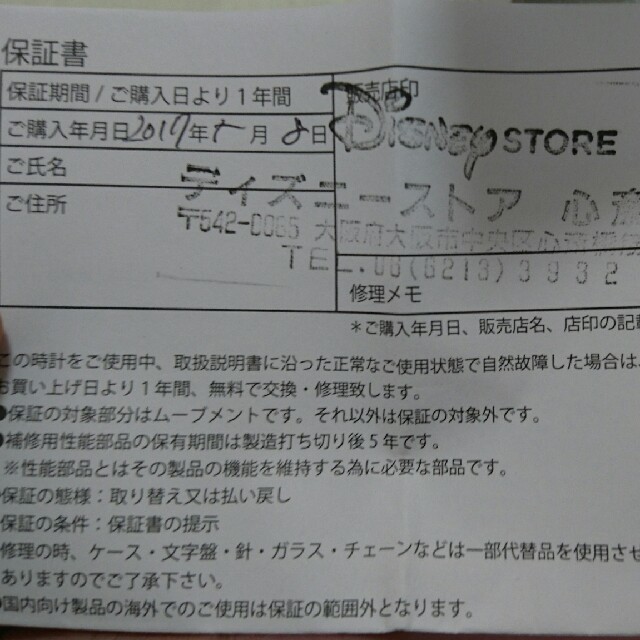 保証書
保証期間 / ご購入日より1年間
売店印
ご購入年月日2017年 月8日
DISNEY STORE
ご氏名
ディズニーストア 心斎
ご住所
〒542-0085 大阪府大阪市中央区心斎橋
TEL.06(6213)3932
修理メモ
＊ご購入年月日、販売店名、店印の記載
この時計をご使用中、取扱説明書に沿った正常なご使用状態で自然故障した場合は、
お買い上げ日より1年間、無料で交換・修理致します。
●保証の対象部分はムーブメントです。それ以外は保証の対象外です。
●補修用性能部品の保有期間は製造打ち切り後5年です。
※性能部品とはその製品の機能を維持する為に必要な部品です。
保証の態様：取り替え又は払い戻し
保証の条件：保証書の提示
修理の時、ケース・文字盤・針・ガラス・チェーンなどは一部代替品を使用させ
ありますのでご了承下さい。
●国内向け製品の海外でのご使用は保証の範囲外となります。